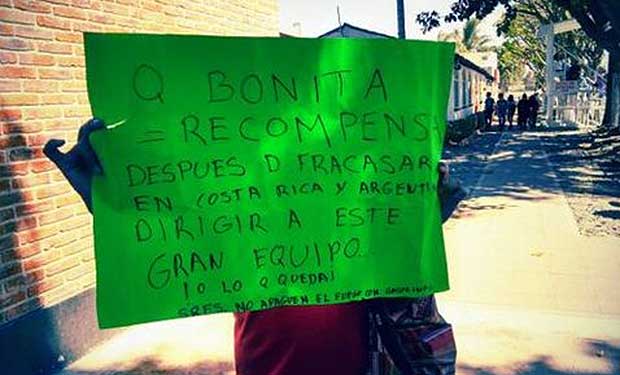 Q BONITA
= RECOMPENS
DESPUES D FRACASAR
EN COSTA RICA Y ARGENTIN
DIRIGIR A ESTE
GRAN EQUIPO.
¡O LO Q QUEDA!
SRES. NO APAGUEN EL FUEGO CON